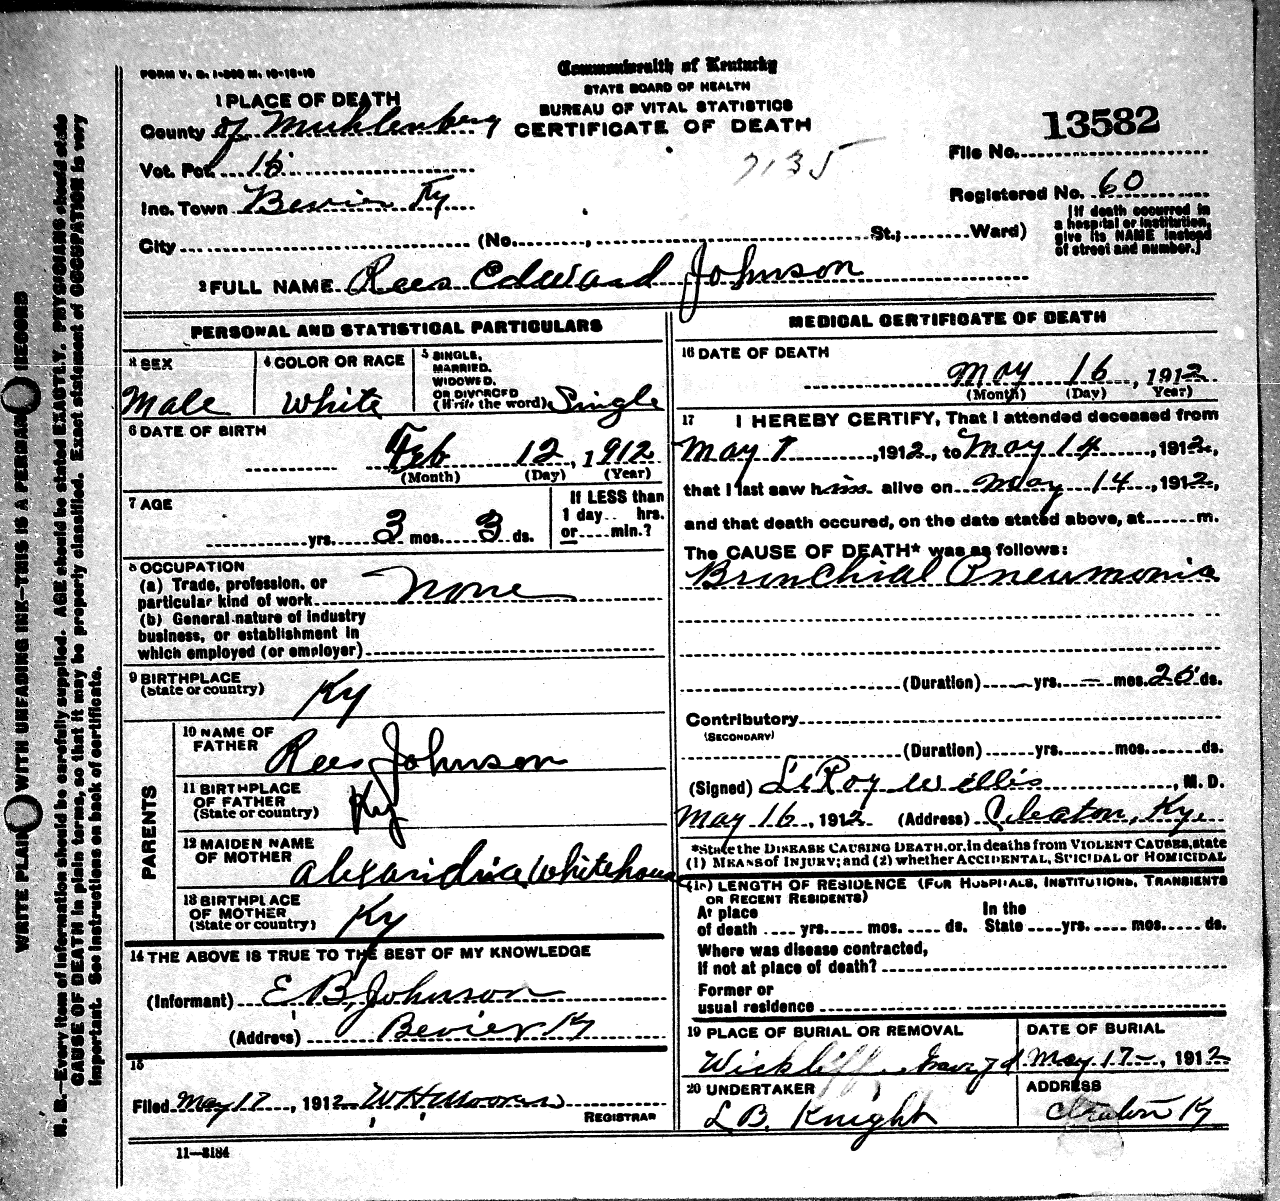 FORM V. S. 1-300 M. 10-10-10
Commonwealth of Kentucky
STATE BOARD OF HEALTH
BUREAU OF VITAL STATISTICS
CERTIFICATE OF DEATH
1 PLACE OF DEATH
County of Muhlenberg
Vot. Pct. 16
Inc. Town Bevier Ky
City (No. , St.; Ward)
7135
13582
File No.
Registered No. 60
[If death occurred in a hospital or institution, give its NAME instead of street and number.]
2 FULL NAME Rees Edward Johnson
PERSONAL AND STATISTICAL PARTICULARS
3 SEX
Male
4 COLOR OR RACE
White
5 SINGLE, MARRIED, WIDOWED, OR DIVORCED (Write the word) Single
6 DATE OF BIRTH
Feb 12, 1912
(Month) (Day) (Year)
7 AGE
yrs. 3 mos. 3 ds.
If LESS than 1 day hrs. or min.?
8 OCCUPATION
(a) Trade, profession, or particular kind of work none
(b) General nature of industry business, or establishment in which employed (or employer)
9 BIRTHPLACE
(State or country) Ky
PARENTS
10 NAME OF FATHER Rees Johnson
11 BIRTHPLACE OF FATHER (State or country) Ky
12 MAIDEN NAME OF MOTHER Alexandria Whitehouse
13 BIRTHPLACE OF MOTHER (State or country) Ky
14 THE ABOVE IS TRUE TO THE BEST OF MY KNOWLEDGE
(Informant) E B Johnson
(Address) Bevier Ky
15
Filed May 17, 1912 W H Moorman
REGISTRAR
11-3184
MEDICAL CERTIFICATE OF DEATH
16 DATE OF DEATH
May 16, 1912
(Month) (Day) Year)
17 I HEREBY CERTIFY, That I attended deceased from
May 1, 1912, to May 14, 1912,
that I last saw him alive on May 14, 1912,
and that death occured, on the date stated above, at m.
The CAUSE OF DEATH* was as follows:
Bronchial Pneumonia
(Duration) yrs. mos. 25 ds.
Contributory
(SECONDARY)
(Duration) yrs. mos. ds.
(Signed) LeRoy Willis, M. D.
May 16, 1912 (Address) Cleaton, Ky.
*State the DISEASE CAUSING DEATH, or, in deaths from VIOLENT CAUSES, state
(1) MEANS of INJURY; and (2) whether ACCIDENTAL, SUICIDAL or HOMICIDAL
18) LENGTH OF RESIDENCE (FOR HOSPITALS, INSTITUTIONS, TRANSIENTS
OR RECENT RESIDENTS)
At place of death yrs. mos. ds. In the State yrs. mos. ds.
Where was disease contracted,
If not at place of death?
Former or
usual residence
19 PLACE OF BURIAL OR REMOVAL
Wickliffe Grave yd
DATE OF BURIAL
May 17, 1912
20 UNDERTAKER
L B. Knight
ADDRESS
Cleaton Ky
WRITE PLAINLY WITH UNFADING INK—THIS IS A PERMANENT RECORD
N. B.—Every item of information should be carefully supplied. AGE should be stated EXACTLY. PHYSICIANS should state
CAUSE OF DEATH in plain terms, so that it may be properly classified. Exact statement of OCCUPATION is very
important. See instructions on back of certificate.